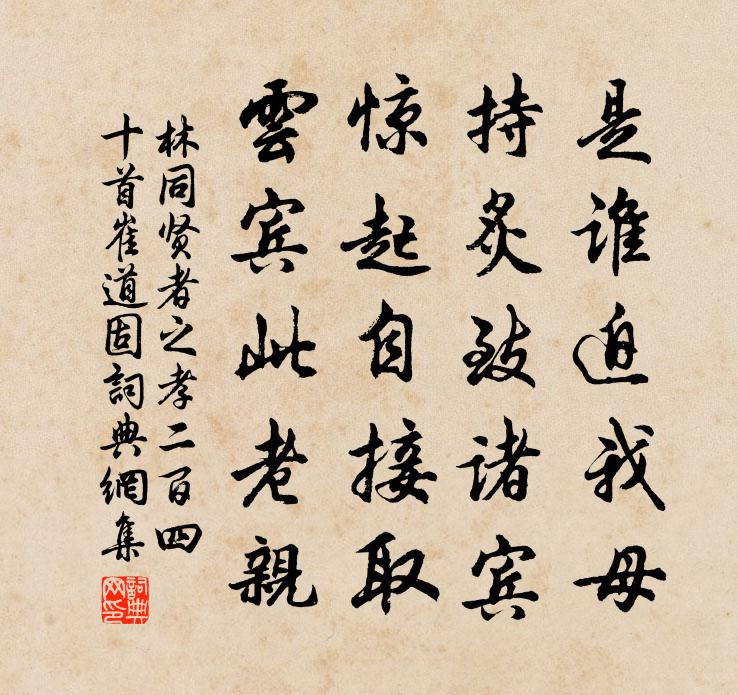 是谁迫我母
持炙致诸宾
惊起自接取
雲宾此老親
林同贤者之孝二百四
十首崔道固詞典網集
詞典
网印